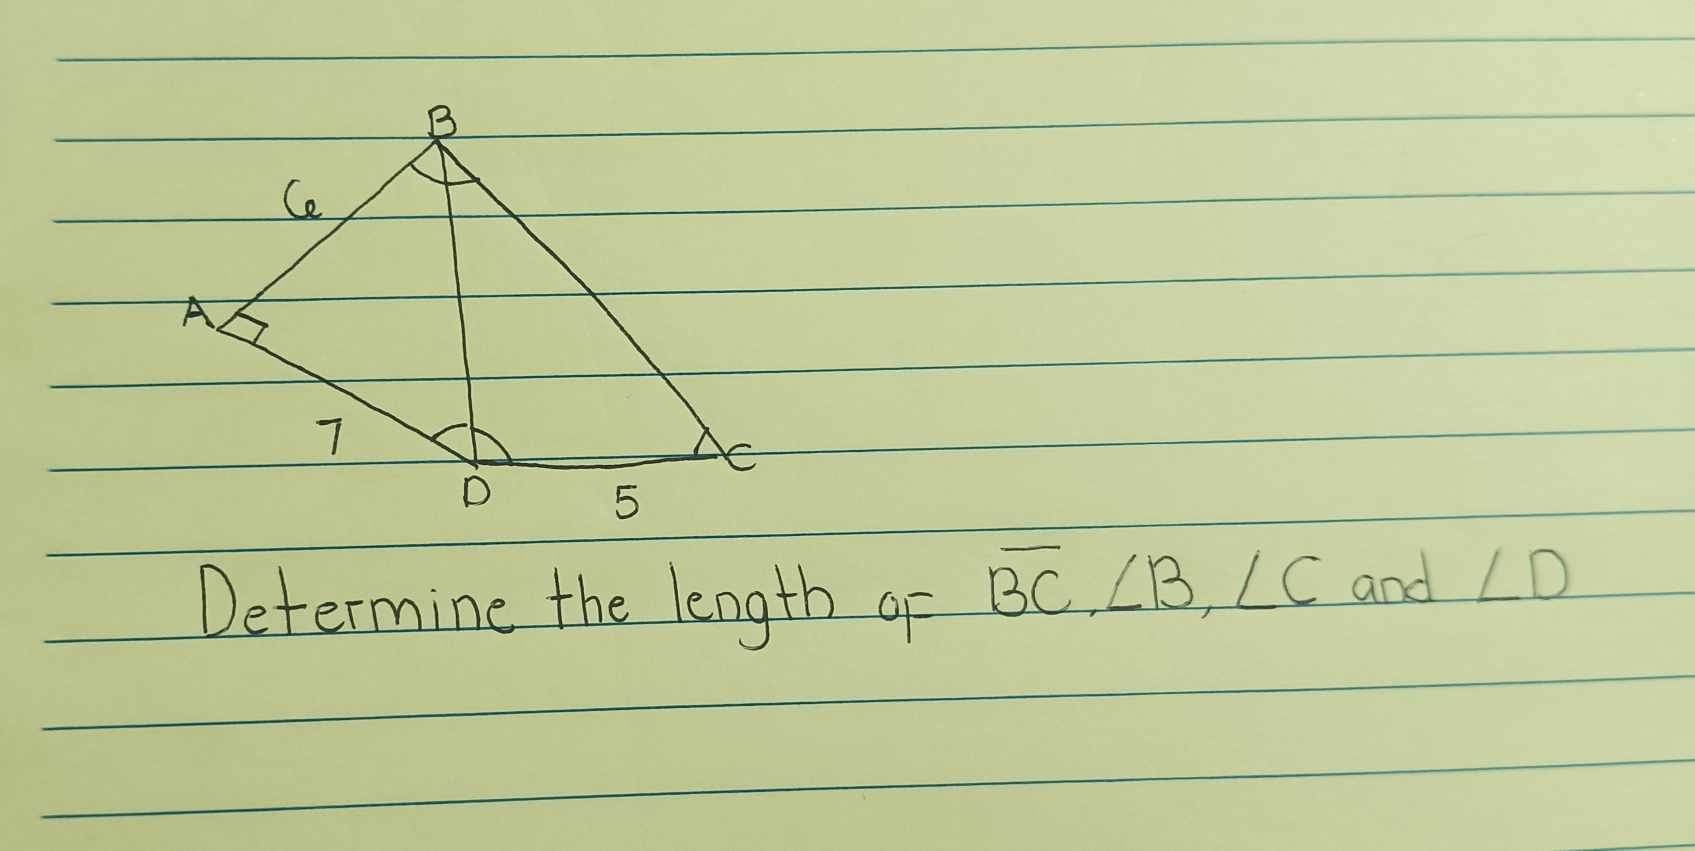 B
6
A
7
D
5
C
Determine the length of BC, ∠B, ∠C and ∠D